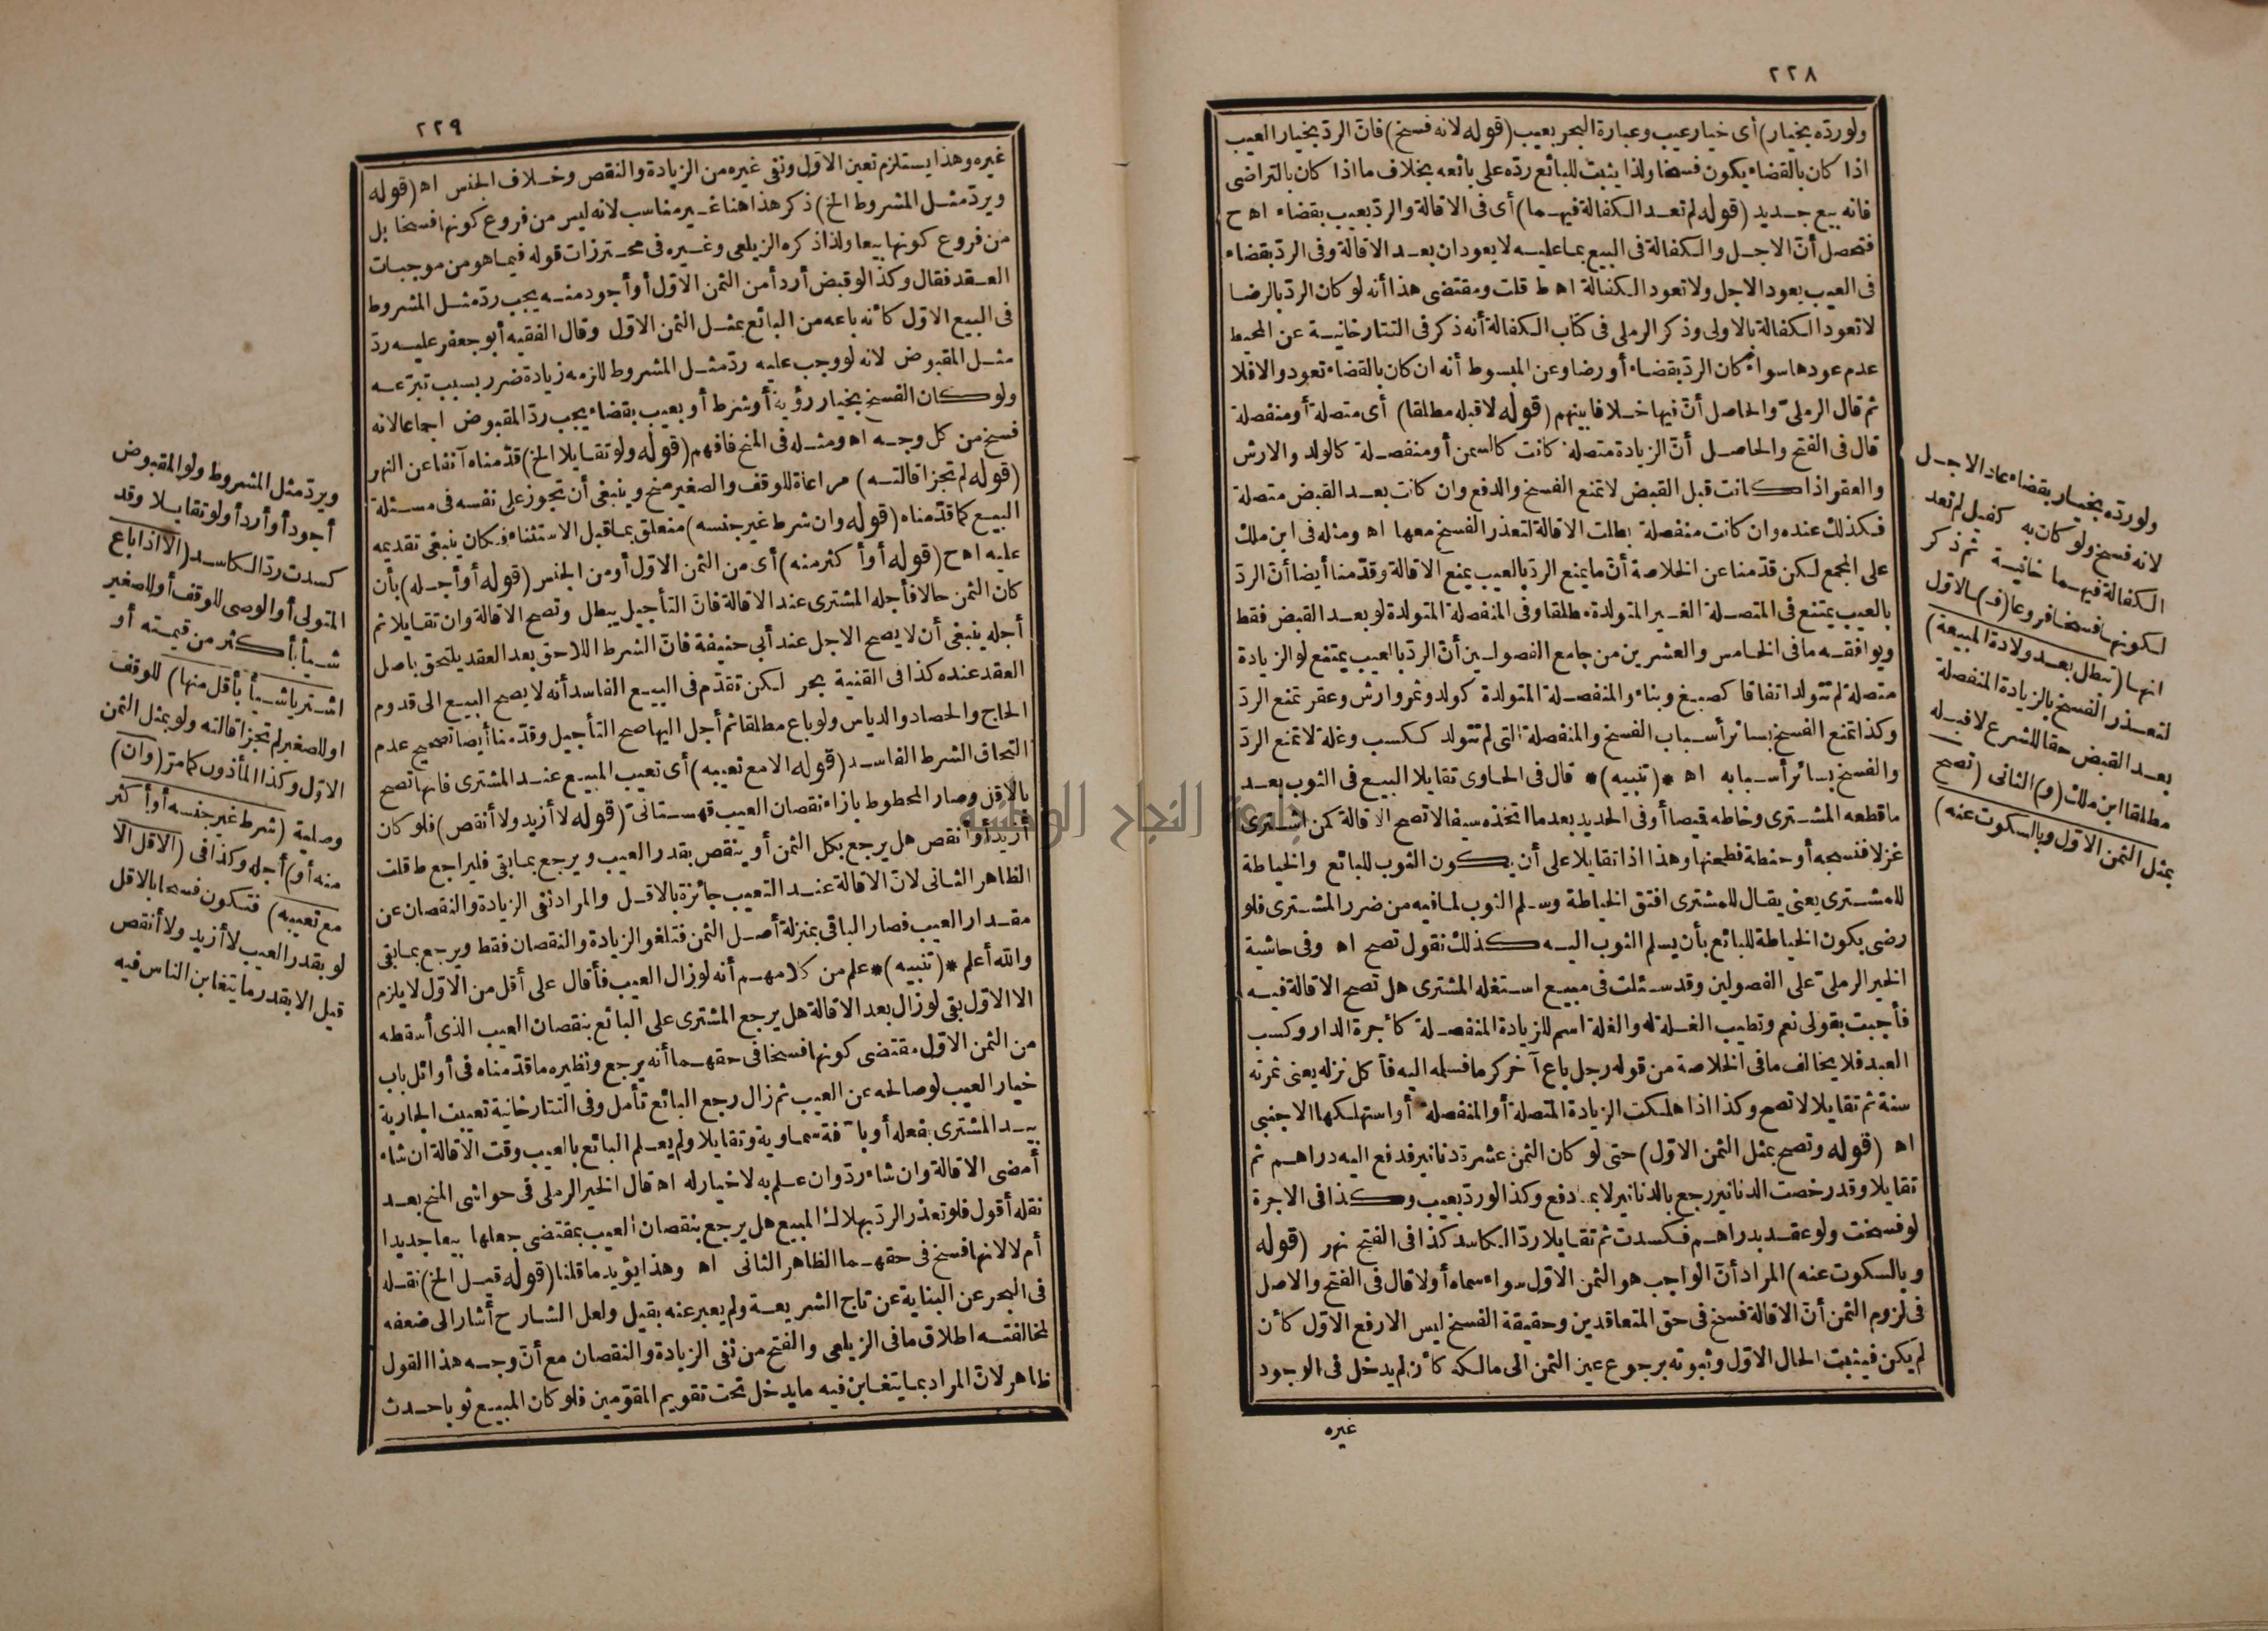 ٢٢٨
ولو ردّه بخيار) أى خيار عيب وعبارة البحر بعيب (قوله لانه فسخ) فانّ الردّ بخيار العيب
اذا كان بالقضاء يكون فسخا ولذا يثبت للبائع ردّه على بائعه بخلاف ما اذا كان بالتراضى
فانه بيع جديد (قوله لم تعد الكفالة فيهما) أى فى الاقالة والردّ بعيب بقضاء اه ح
فتحصل أنّ الاجل والكفالة فى البيع بما عليه لا يعودان بعد الاقالة وفى الردّ بقضاء
فى العيب يعود الاجل ولا تعود الكفالة اه ط قلت ومقتضى هذا أنه لو كان الردّ بالرضا
لا تعود الكفالة بالاولى وذكر الرملى فى كتاب الكفالة أنه ذكر فى التتارخانية عن المحيط
عدم عودها سواء كان الردّ بقضاء أو رضا وعن المبسوط أنه ان كان بالقضاء تعود والا فلا
ثم قال الرملىّ والحاصل أنّ فيها خلافا بينهم (قوله لا قبله مطلقا) أى متصلة أو منفصلة
قال فى الفتح والحاصل أنّ الزيادة متصلة كانت كالسمن أو منفصلة كالولد والارش
والعقر اذا كانت قبل القبض لا تمنع الفسخ والدفع وان كانت بعد القبض متصلة
فكذلك عنده وان كانت منفصلة بطلت الاقالة لتعذر الفسخ معها اه ومثله فى ابن ملك
على المجمع لكن قدّمنا عن الخلاصة أنّ ما يمنع الردّ بالعيب يمنع الاقالة وقدّمنا أيضا أنّ الردّ
بالعيب يمتنع فى المتصلة الغير المتولدة مطلقا وفى المنفصلة المتولدة لو بعد القبض فقط
ويوافقه ما فى الخامس والعشرين من جامع الفصولين أنّ الردّ بالعيب يمتنع لو الزيادة
متصلة لم تتولد اتفاقا كصبغ وبناء والمنفصلة المتولدة كولد وثمر وارش وعقر تمنع الردّ
وكذا تمنع الفسخ بسائر أسباب الفسخ والمنفصلة التى لم تتولد ككسب وغلة لا تمنع الردّ
والفسخ بسائر أسبابه اه *(تنبيه)* قال فى الحاوى تقايلا البيع فى الثوب بعد
ما قطعه المشترى وخاطه قميصا أو فى الحديد بعد ما اتخذه سيفا لا تصح الاقالة كمن اشترى
غزلا فنسجه أو حنطة فطحنها وهذا اذا تقايلا على أن يكون الثوب للبائع والخياطة
للمشترى يعنى يقال للمشترى افتق الخياطة وسلم الثوب لما فيه من ضرر المشترى فلو
رضى بكون الخياطة للبائع بأن يسلم الثوب اليه كذلك نقول تصح اه وفى حاشية
الخير الرملىّ على الفصولين وقد سئلت فى مبيع استغله المشترى هل تصح الاقالة فيه
فأجبت بقولى نعم وتطيب الغلة له والغلة اسم للزيادة المنفصلة كأجرة الدار وكسب
العبد فلا يخالف ما فى الخلاصة من قوله رجل باع آخر كرما فسلمه اليه فأكل نزله يعنى ثمرته
سنة ثم تقايلا لا تصح وكذا اذا هلكت الزيادة المتصلة أو المنفصلة أو استهلكها الاجنبى
اه (قوله وتصح بمثل الثمن الاوّل) حتى لو كان الثمن عشرة دنانير فدفع اليه دراهم ثم
تقايلا وقد رخصت الدنانير رجع بالدنانير لا بما دفع وكذا لو ردّ بعيب وكذا فى الاجرة
لو فسخت ولو عقد بدراهم فكسدت ثم تقايلا ردّ الكاسد كذا فى الفتح نهر (قوله
وبالسكوت عنه) المراد أنّ الواجب هو الثمن الاوّل سواء سماه أو لا قال فى الفتح والاصل
فى لزوم الثمن أنّ الاقالة فسخ فى حق المتعاقدين وحقيقة الفسخ ليس الا رفع الاوّل كأن
لم يكن فيثبت الحال الاوّل وثبوته برجوع عين الثمن الى مالكه كأن لم يدخل فى الوجود
غيره
ولو ردّه بخيار بقضاء عاد الاجل
لانه فسخ ولو كان به كفيل لم تعد
الكفالة فيهما خانية ثم ذكر
لكونها فسخا فروعا (فـ) ـالاوّل
انها (تبطل بعد ولادة المبيعة)
لتعذر الفسخ بالزيادة المنفصلة
بعد القبض حقا للشرع لا قبله
مطلقا ابن ملك (و) الثانى (تصح
بمثل الثمن الاوّل وبالسكوت عنه)
٢٢٩
غيره وهذا يستلزم تعين الاوّل ونفى غيره من الزيادة والنقص وخلاف الجنس اه (قوله
ويردّ مثل المشروط الخ) ذكر هذا هنا غير مناسب لانه ليس من فروع كونها فسخا بل
من فروع كونها بيعا ولذا ذكره الزيلعى وغيره فى محترزات قوله فيما هو من موجبات
العقد فقال وكذا لو قبض أردأ من الثمن الاوّل أو أجود منه يجب ردّ مثل المشروط
فى البيع الاوّل كأنه باعه من البائع بمثل الثمن الاوّل وقال الفقيه أبو جعفر عليه ردّ
مثل المقبوض لانه لو وجب عليه ردّ مثل المشروط للزمه زيادة ضرر بسبب تبرّعه
ولو كان الفسخ بخيار رؤية أو شرط أو بعيب بقضاء يجب ردّ المقبوض اجماعا لانه
فسخ من كل وجه اه ومثله فى المنح فافهم (قوله ولو تقايلا الخ) قدّمناه آنفا عن النهر
(قوله لم تجز اقالته) مراعاة للوقف والصغير منح وينبغى أن تجوز على نفسه فى مسئلة
البيع كما قدّمناه (قوله وان شرط غير جنسه) متعلق بما قبل الاستثناء فكان ينبغى تقديمه
عليه اه ح (قوله أو أكثر منه) أى من الثمن الاوّل أو من الجنس (قوله أو أجله) بأن
كان الثمن حالا فأجله المشترى عند الاقالة فانّ التأجيل يبطل وتصح الاقالة وان تقايلا ثم
أجله ينبغى أن لا يصح الاجل عند أبى حنيفة فانّ الشرط اللاحق بعد العقد يلتحق باصل
العقد عنده كذا فى القنية بحر لكن تقدّم فى البيع الفاسد أنه لا يصح البيع الى قدوم
الحاج والحصاد والدياس ولو باع مطلقا ثم أجل اليها صح التأجيل وقدّمنا أيضا تصحيح عدم
التحاق الشرط الفاسد (قوله الا مع تعيبه) أى تعيب المبيع عند المشترى فانها تصح
بالاقل وصار المحطوط بازاء نقصان العيب قهستانىّ (قوله لا أزيد ولا أنقص) فلو كان
أزيد أو أنقص هل يرجع بكل الثمن أو ينقص بقدر العيب ويرجع بما بقى فليراجع ط قلت
الظاهر الثانى لانّ الاقالة عند التعيب جائزة بالاقل والمراد نفى الزيادة والنقصان عن
مقدار العيب فصار الباقى بمنزلة أصل الثمن فتلغو الزيادة والنقصان فقط ويرجع بما بقى
والله أعلم *(تنبيه)* علم من كلامهم أنه لو زال العيب فأقال على أقل من الاوّل لا يلزم
الا الاوّل بقى لو زال بعد الاقالة هل يرجع المشترى على البائع بنقصان العيب الذى أسقطه
من الثمن الاوّل مقتضى كونها فسخا فى حقهما أنه يرجع ونظيره ما قدّمناه فى أوائل باب
خيار العيب لو صالحه عن العيب ثم زال رجع البائع تأمل وفى التتارخانية تعيبت الجارية
بيد المشترى بفعله أو بآفة سماوية وتقايلا ولم يعلم البائع بالعيب وقت الاقالة ان شاء
أمضى الاقالة وان شاء ردّ وان علم به لا خيار له اه قال الخير الرملى فى حواشى المنح بعد
نقله أقول فلو تعذر الردّ بهلاك المبيع هل يرجع بنقصان العيب بمقتضى جعلها بيعا جديدا
أم لا لانها فسخ فى حقهما الظاهر الثانى اه وهذا يؤيد ما قلنا (قوله قيل الخ) نقله
فى البحر عن البناية عن تاج الشريعة ولم يعبر عنه بقيل ولعل الشارح أشار الى ضعفه
لمخالفته اطلاق ما فى الزيلعى والفتح من نفى الزيادة والنقصان مع أنّ وجه هذا القول
ظاهر لانّ المراد بما يتغابن فيه ما يدخل تحت تقويم المقوّمين فلو كان المبيع ثوبا حدث
ويردّ مثل المشروط ولو المقبوض
أجود أو أردأ ولو تقايلا وقد
كسدت ردّ الكاسد (الا اذا باع
المتولى أو الوصى للوقف أو للصغير
شيأ بأكثر من قيمته أو
اشتريا شيأ بأقل منها) للوقف
او للصغير لم تجز اقالته ولو بمثل الثمن
الاوّل وكذا المأذون كما مرّ (وان)
وصلية (شرط غير جنسه أو أكثر
منه أو) أجله وكذا فى (الاقل الا
مع تعيبه) فتكون فسخا بالاقل
لو بقدر العيب لا أزيد ولا أنقص
قيل الا بقدر ما يتغابن الناس فيه
جامعة النجاح الوطنية